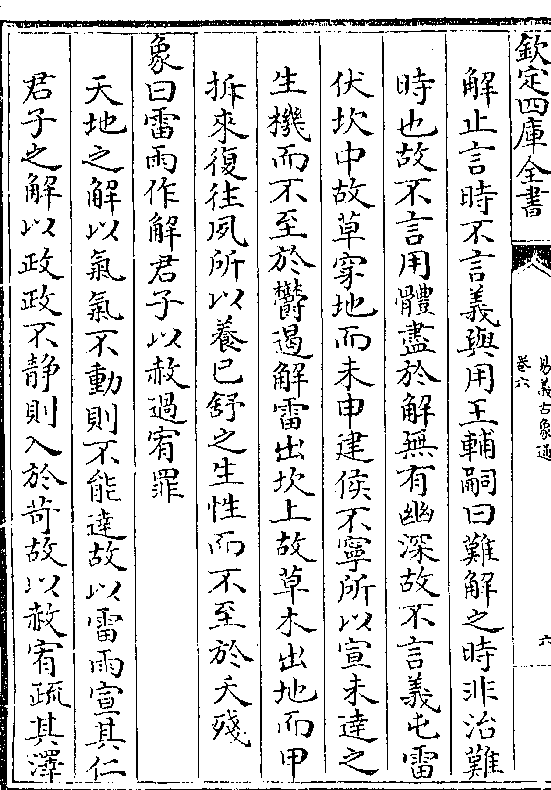 欽定四庫全書
易義古象通
卷六
六
解止言時不言義與用王輔嗣曰難解之時非治難
時也故不言用體盡於解無有幽深故不言義屯雷
伏坎中故草穿地而未申建侯不寧所以宣未達之
生機而不至於鬱遏解雷出坎上故草木出地而甲
拆來復往夙所以養已舒之生性而不至於夭殘
象曰雷雨作解君子以赦過宥罪
天地之解以氣氣不動則不能達故以雷雨宣其仁
君子之解以政政不静則入於苛故以赦宥疏其澤